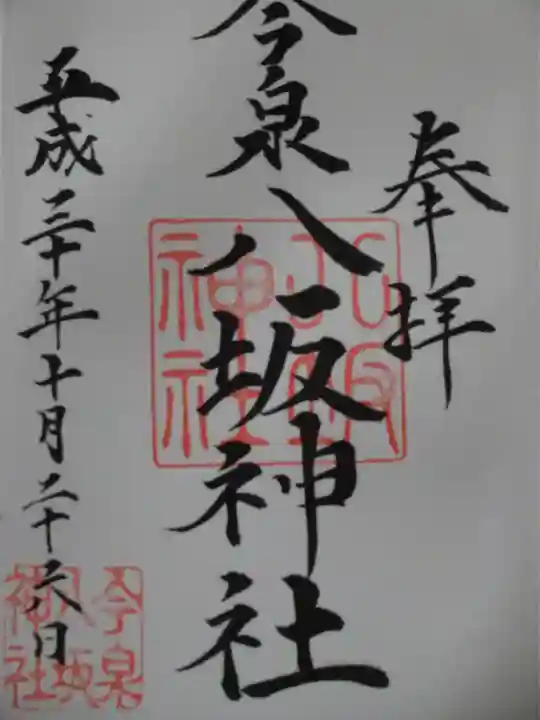 奉拝
今泉八坂神社
八坂
神社
平成三十年十月二十六日
今泉
八坂
神社